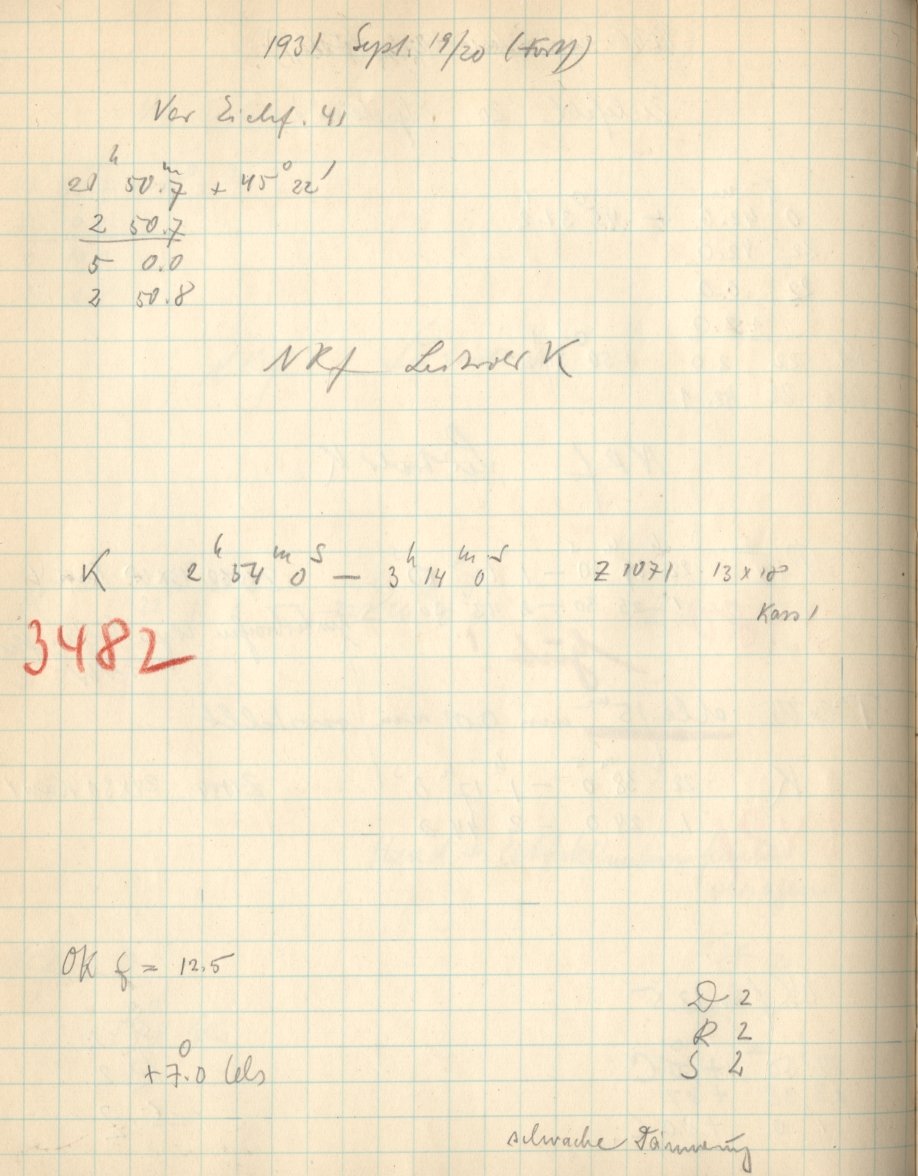 1931 Sept. 19/20 (Forts)
Var Eichf. 41
21ʰ 50.ᵐ7 + 45° 22'
2 50.7
5 0.0
2 50.8
NRf K
K 2ʰ 54ᵐ 0ˢ — 3ʰ 14ᵐ 0ˢ Z 1071 13 x 18
Kass 1
3482
OK f = 12.5
D 2
R 2
+7.°0 Cels
S 2
schwache Dämmerung